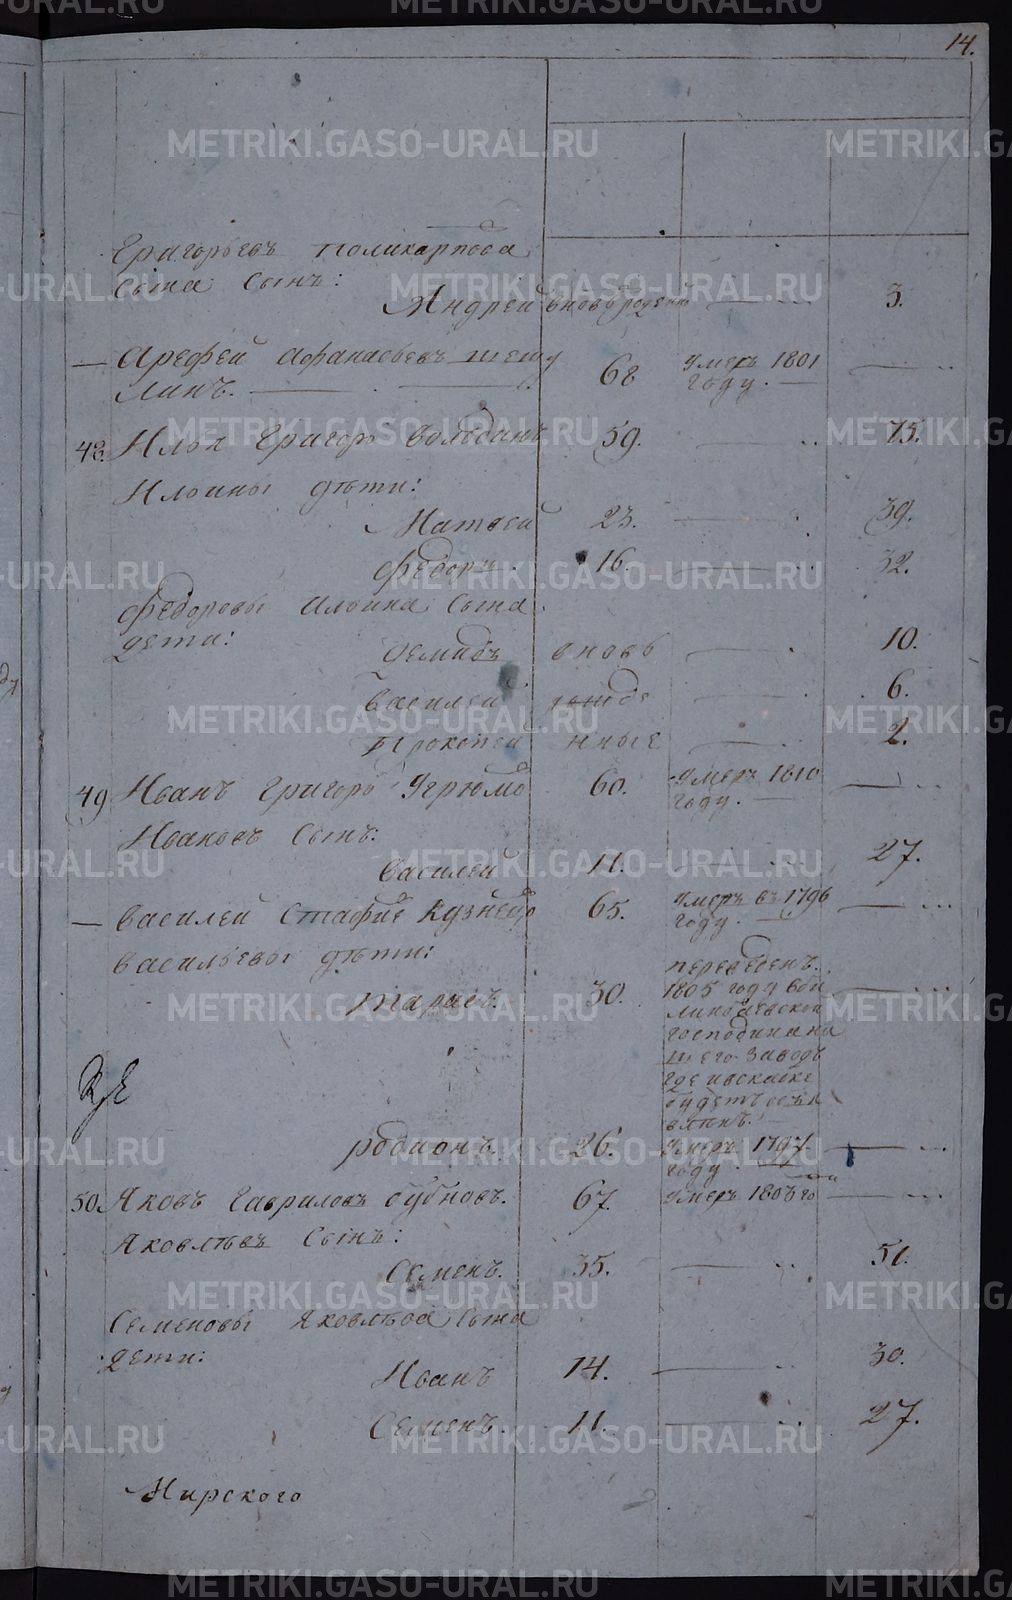 14.
Григорьевъ Поликарпова
сына сынъ:
Андрей вновьрожденъ 3.
— Арефей Афанасьевъ Шешу
линъ. 68 умеръ 1801
году. —
48. Илья Григорь 59. 75.
Ильины дѣти:
Матвей 23. 39.
Федоръ. 16. 32.
Федоровы Ильина сына
дети:
Демидъ вновь 10.
Василей рожде 6.
Прокопей нные 2.
49 Иванъ Григорь Угрюмо 60. умеръ 1810
году. —
Ивановъ сынъ:
Василей 11. 27.
— Василей Стафие Кузнецо 65. умеръ въ 1796
году. —
Васильевы дѣти:
Тарасъ. 30. переведенъ
1805 году въби
лимбаевской
господина на
шего заводъ
где и в скаске
будетъ объя
вленъ.
Родионъ 26. умеръ 1797
году.
50. Яковъ Гавриловъ Бубновъ. 67. умеръ 1808 го
Яковлѣвъ сынъ:
Семенъ. 35. 51.
Семеновы Яковлѣва сына
дети:
Иванъ 14. 30.
Семенъ. 11. 27.
Мирского
METRIKI.GASO-URAL.RU